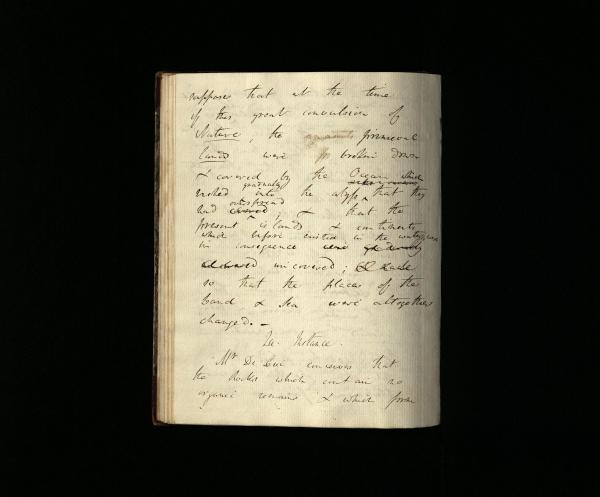 supposes that at the time
of this great convulsion of
Nature; the primeval
lands were broken down
& covered by the Ocean which
gradually
rushed into the abyss that they
had overspread, & that the
present islands & continents
which before existed in the
in consequence were
uncovered;
so that the places of the
land & sea were altogether
changed. –
In. Instance.
Mr De Luc conceives that
the rocks which contain no
organic remains & which form